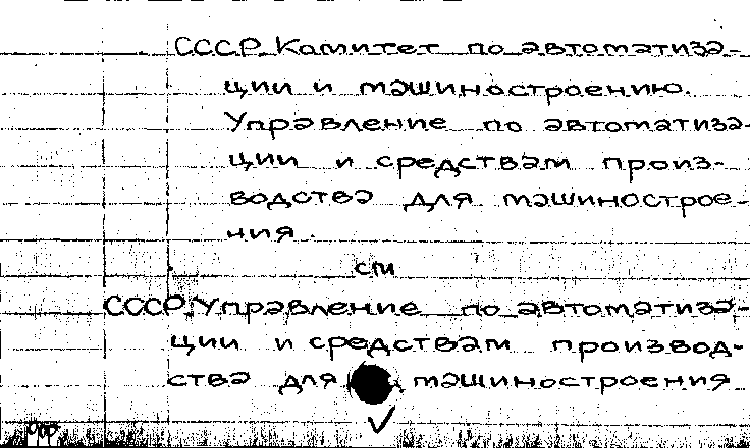 СССР. Комитет по автоматиза-
ции и машиностроению.
Управление по автоматиза-
ции и средствам произ-
водства для машинострое-
ния.
см
СССР. Управление по автоматиза-
ции и средствам производ-
ства для машиностроения